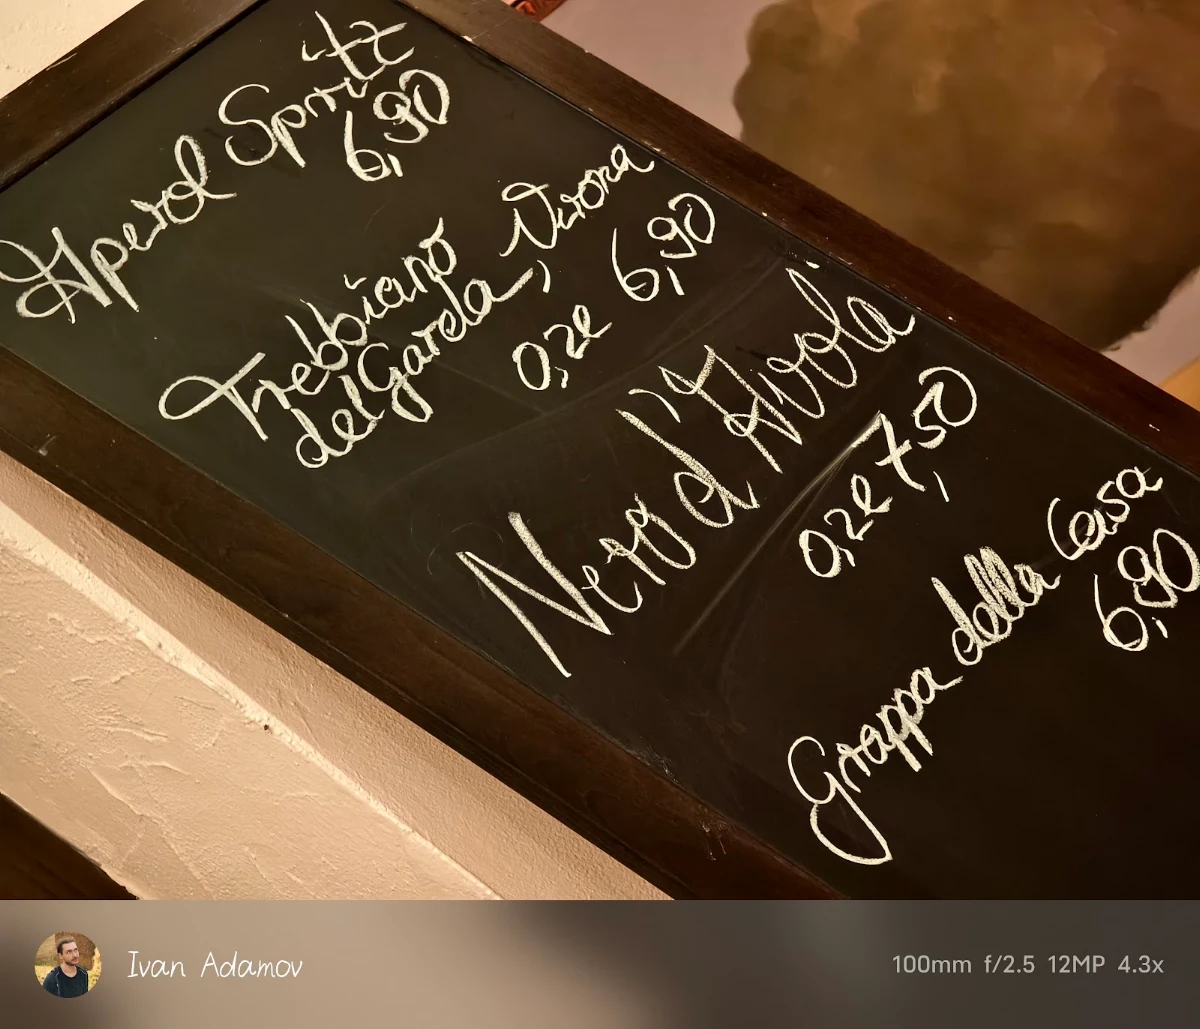 Aperol Spritz
6,90
Trebbiano
del Garda, Verona
0,2l 6,90
Nero d'Avola
0,2l 7,50
Grappa della Casa
6,90
Ivan Adamov
100mm f/2.5 12MP 4.3x